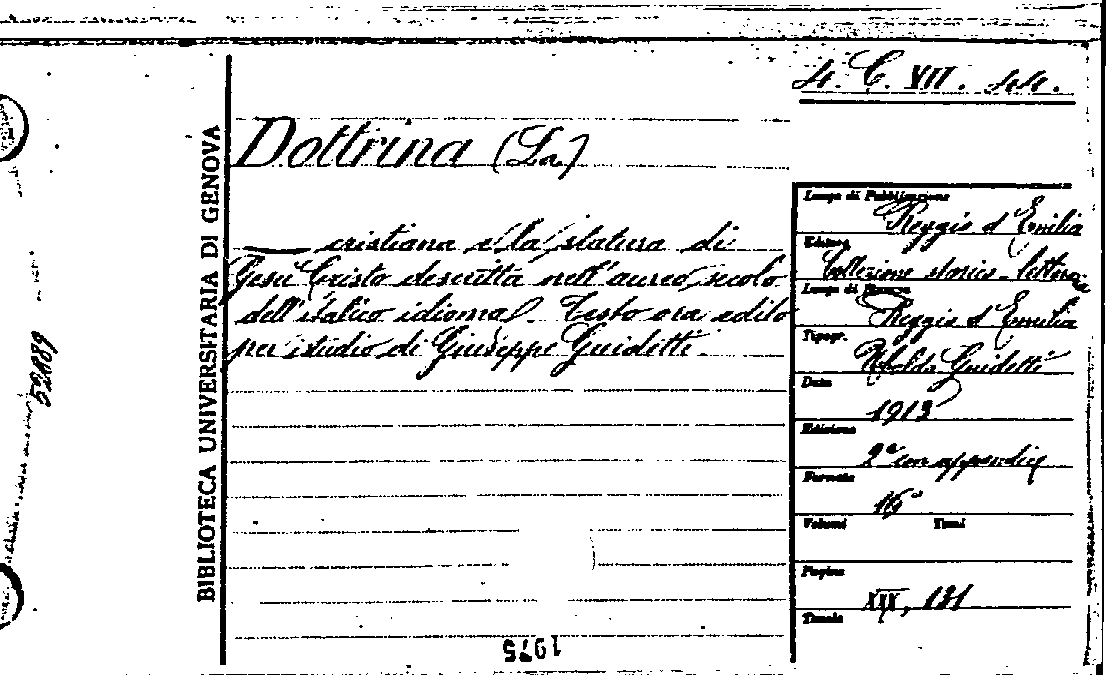 4. C. VII. 44.
Dottrina (La)
—— cristiana e la statura di
Gesù Cristo descritta nell'aureo secolo
dell'italico idioma. Testo ora edito
per istudio di Giuseppe Guidetti.
BIBLIOTECA UNIVERSITARIA DI GENOVA
52189
1975
Luogo di Pubblicazione
Reggio d'Emilia
Editore
Collezione storico-letteraria
Luogo di Stampa
Reggio d'Emilia
Tipogr.
Ubaldo Guidetti
Data
1913
Edizione
2ª con appendice
Formato
16°
Volumi Tomi
Pagine
XIX, 121
Tavole